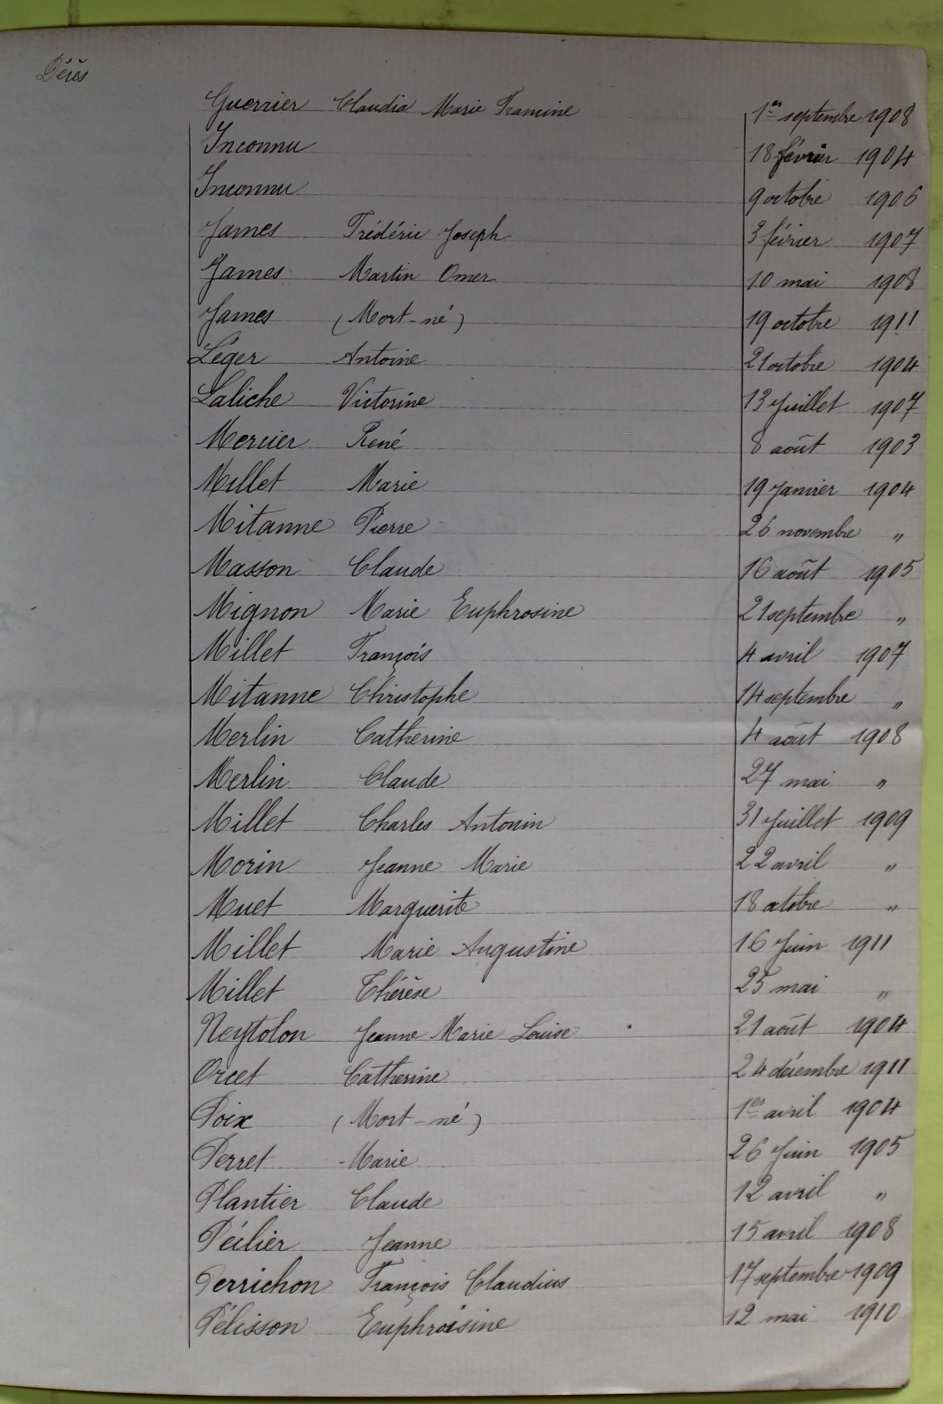 Décès
Guerrier Claudia Marie Framine 1er septembre 1908
Inconnu 18 février 1904
Inconnu 9 octobre 1906
James Frédéric Joseph 3 février 1907
James Martin Omer 10 mai 1908
James (Mort-né) 19 octobre 1911
Léger Antoine 21 octobre 1904
Laliche Victorine 13 Juillet 1907
Mercier René 8 août 1903
Millet Marie 19 Janvier 1904
Mitanne Pierre 26 novembre "
Masson Claude 16 août 1905
Mignon Marie Euphrosine 21 septembre "
Millet François 4 avril 1907
Mitanne Christophe 14 septembre "
Merlin Catherine 4 août 1908
Merlin Claude 27 mai "
Millet Charles Antonin 31 Juillet 1909
Morin Jeanne Marie 22 avril "
Muet Marguerite 18 octobre "
Millet Marie Augustine 16 Juin 1911
Millet Thérèse 25 mai "
Neytolon Jeanne Marie Louise 21 août 1904
Orcet Catherine 24 décembre 1911
Poix (Mort-né) 1er avril 1904
Perret Marie 26 Juin 1905
Plantier Claude 12 avril "
Péilier Jeanne 15 avril 1908
Perrichon François Claudius 17 septembre 1909
Pélisson Euphroisine 12 mai 1910